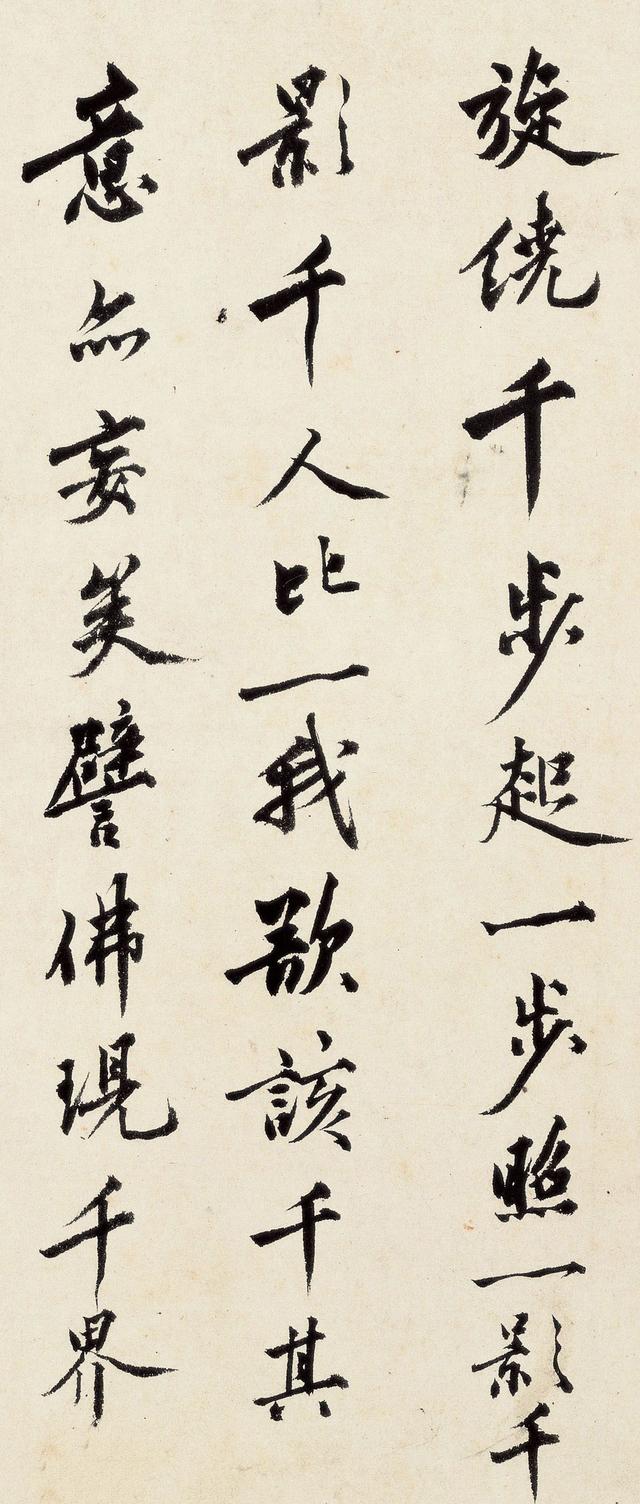 旋繞千步起一步照一影千
影千人比一我欲該千其
意亦妄矣譬佛現千界